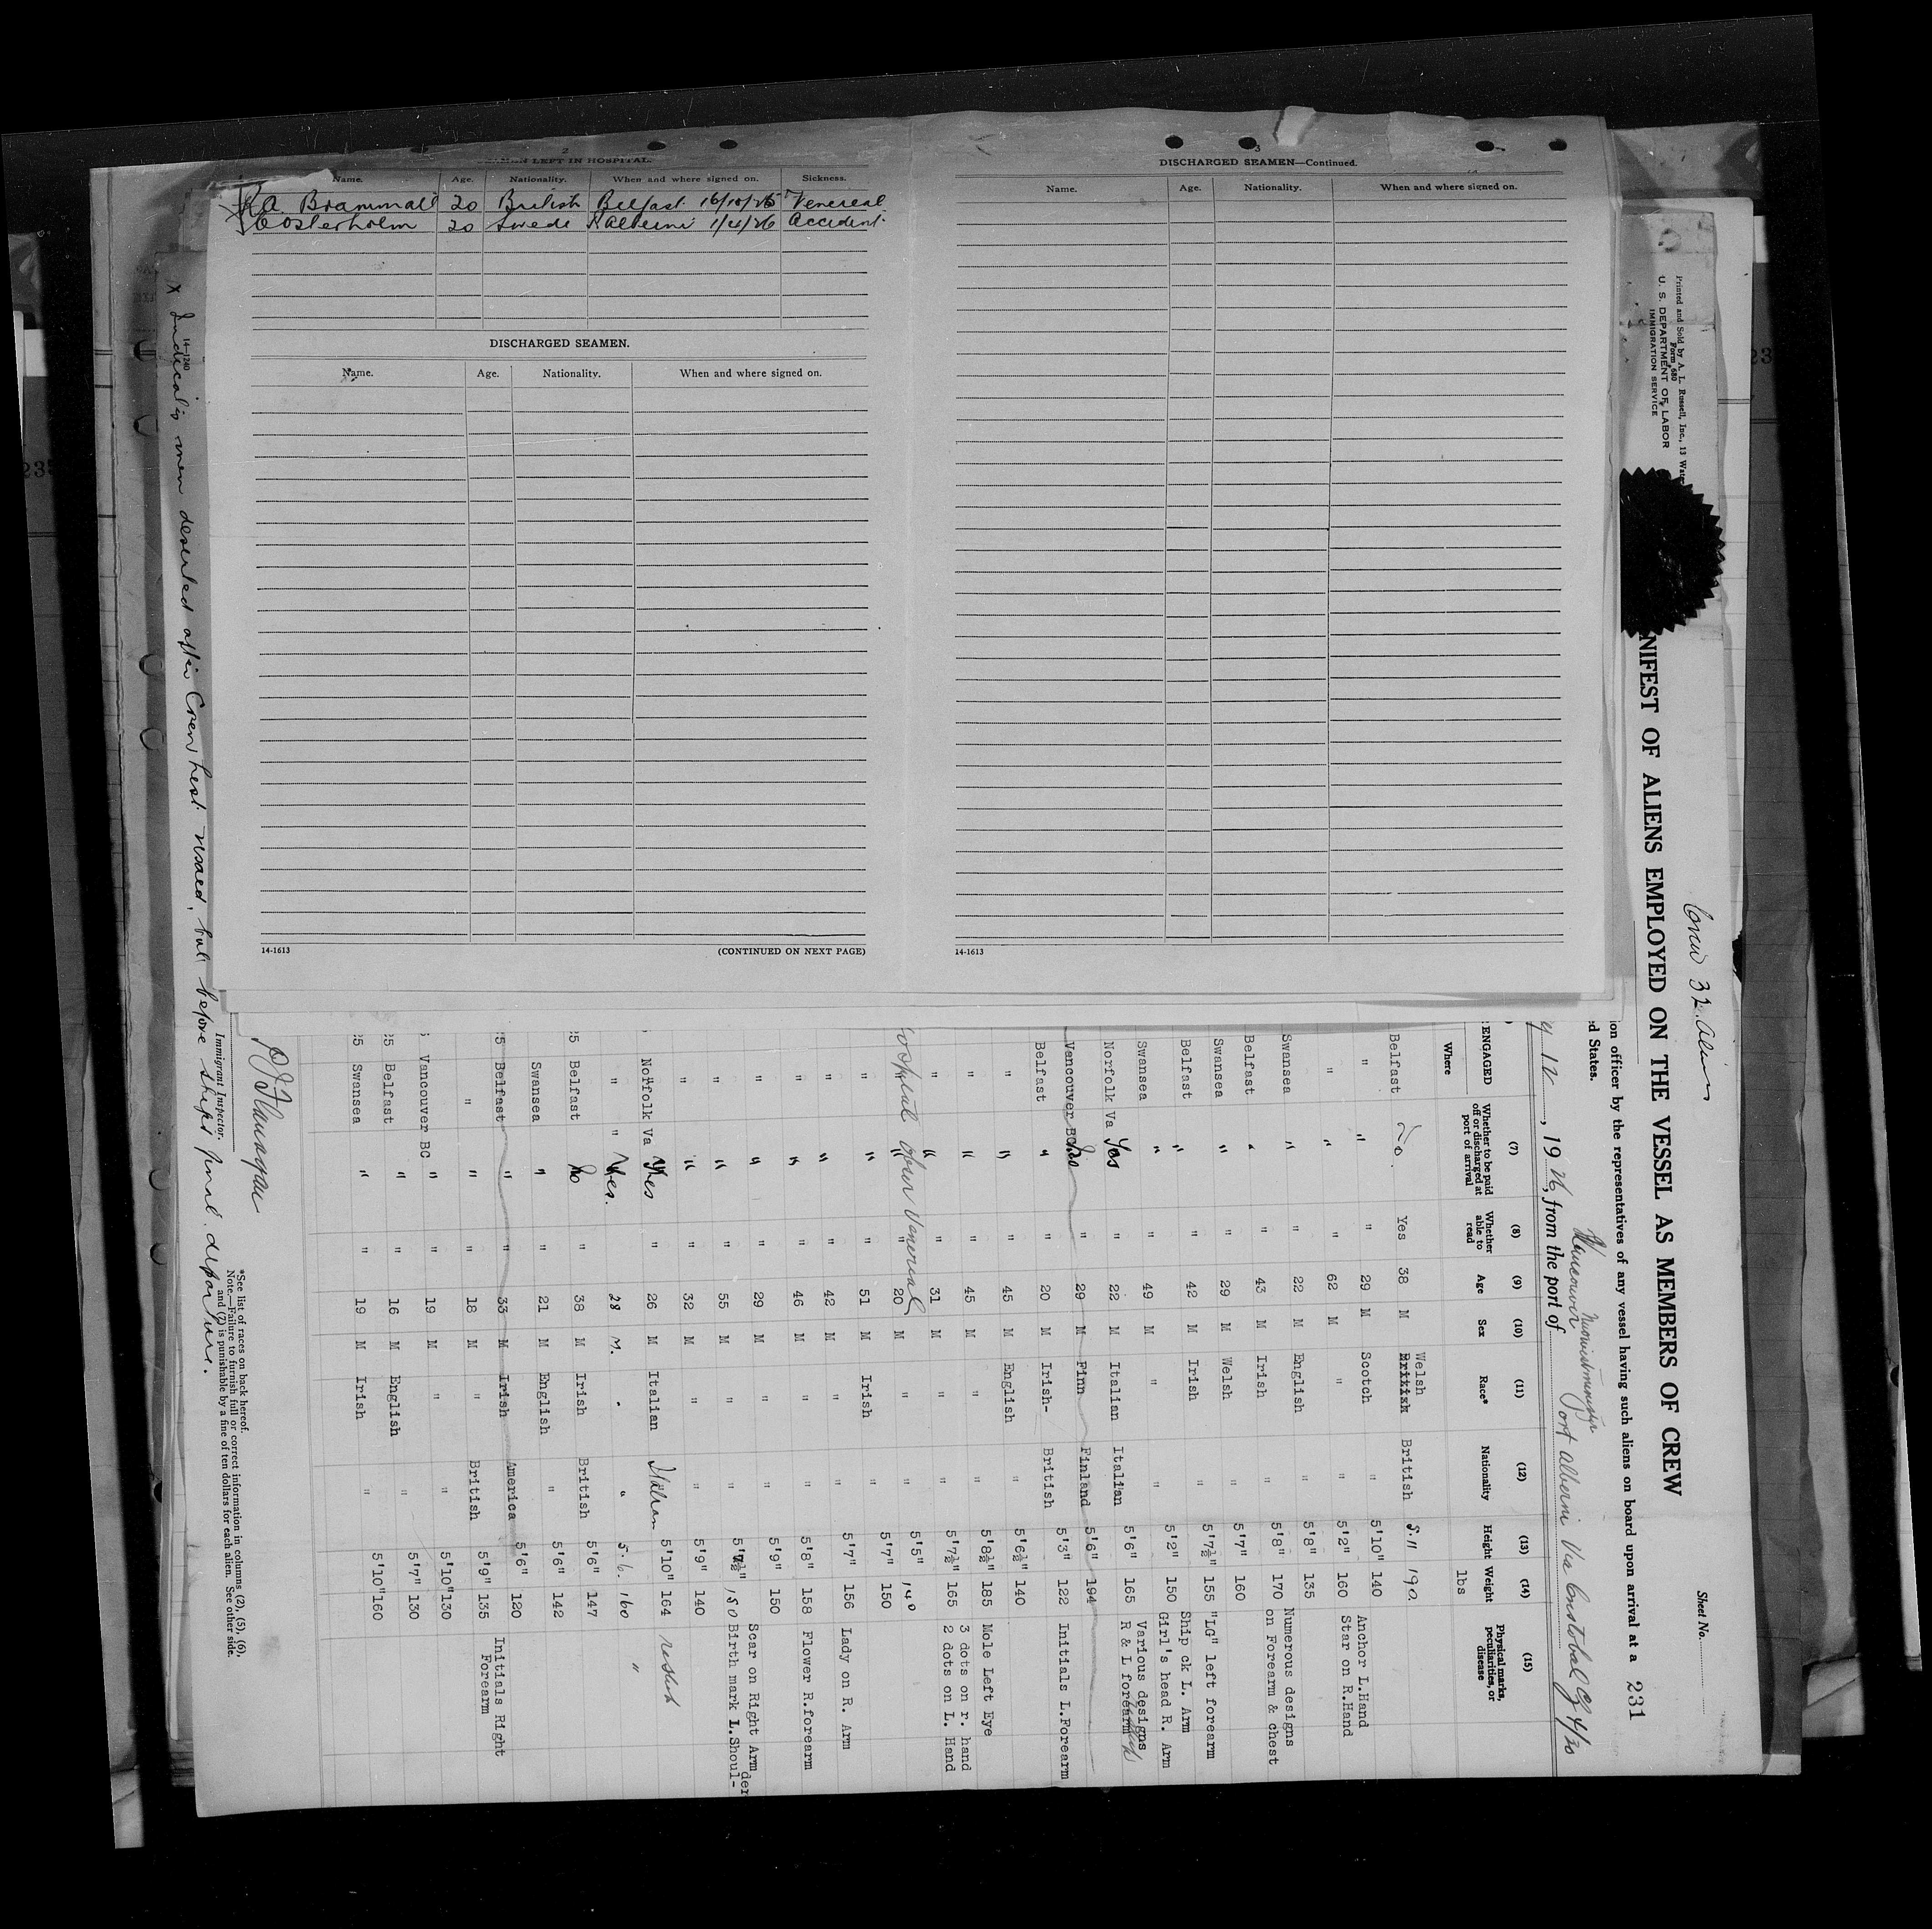 2
SEAMEN LEFT IN HOSPITAL.
Name. Age. Nationality. When and where signed on. Sickness.
R.A. Brammall 20 British Belfast 16/10/25 Venereal
C Osterholm 20 Swede Pt Alberni 1/4/26 Accident
DISCHARGED SEAMEN.
Name. Age. Nationality. When and where signed on.
14-1613 (CONTINUED ON NEXT PAGE)
3
DISCHARGED SEAMEN—Continued.
Name. Age. Nationality. When and where signed on.
14-1613
Printed and Sold by A. L. Russell, Inc., 13 Water
Form 680
U. S. DEPARTMENT OF LABOR
IMMIGRATION SERVICE
Crew 32. Alien
Sheet No.
NIFEST OF ALIENS EMPLOYED ON THE VESSEL AS MEMBERS OF CREW
ion officer by the representatives of any vessel having such aliens on board upon arrival at a 231
ed States.
Vancouver
y 12, 1926, from the port of Port Alberni Via Cristobal CZ 4/30
ENGAGED (7) (8) (9) (10) (11) (12) (13) (14) (15)
Where Whether to be paid off or discharged at port of arrival Whether able to read Age Sex Race* Nationality Height Weight lbs Physical marks, peculiarities, or disease
Belfast No. Yes 38 M Welsh British British 5.11 190.
" " " 29 M Scotch " 5'10" 140 Anchor L.Hand
" " " 62 M " " 5'2" 160 Star on R.Hand
Swansea " " 22 M English " 5'8" 135
Belfast " " 43 M Irish " 5'8" 170 Numerous designs on Forearm & chest
Swansea " " 29 M Welsh " 5'7" 160
Belfast " " 42 M Irish " 5'7½" 155 "LG" left forearm
Swansea " " 49 M " " 5'2" 150 Ship ck L. Arm Girl's head R. Arm
Norfolk Va Yes " 22 M Italian Italian 5'6" 165 Various designs R & L forearm
Vancouver BC No " 29 M Finn Finland 5'6" 194
Belfast " " 20 M Irish- British 5'3" 122 Initials L.Forearm
" " " 45 M English " 5'6½" 140
" " " 45 M " " 5'8½" 185 Mole Left Eye
" " " 31 M " " 5'7½" 165 3 dots on r. hand 2 dots on L. Hand
Hospital " Venereal " 20 M " " 5'5" 140
" " " 51 M Irish " 5'7" 150
" " " 42 M " " 5'7" 156 Lady on R. Arm
" " " 46 M " " 5'8" 158 Flower R.forearm
" " " 29 M " " 5'9" 150
" " " 55 M " " 5'7½" 150 Scar on Right Arm Birth mark L.Shoulder
" " " 32 M " " 5'9" 140
Norfolk Va Yes " 26 M Italian Italian 5'10" 164
" " Yes. 28 M. " " 5.6. 160 "
25 Belfast No " 38 M Irish British 5'6" 147
Swansea " " 21 M English " 5'6" 142
25 Belfast " " 33 M Irish America 5'6" 120
" " " 18 M " British 5'9" 135 Initials Right Forearm
Vancouver BC " " 19 M " " 5'10" 130
25 Belfast " " 16 M English " 5'7" 130
25 Swansea " " 19 M Irish " 5'10" 160
Immigrant Inspector.
*See list of races on back hereof.
Note.—Failure to furnish full or correct information in columns (2), (5), (6),
and (7) is punishable by a fine of ten dollars for each alien. See other side.
14-1240
X Indicates men deserted after Crew List visaed, but before ship's final departure.